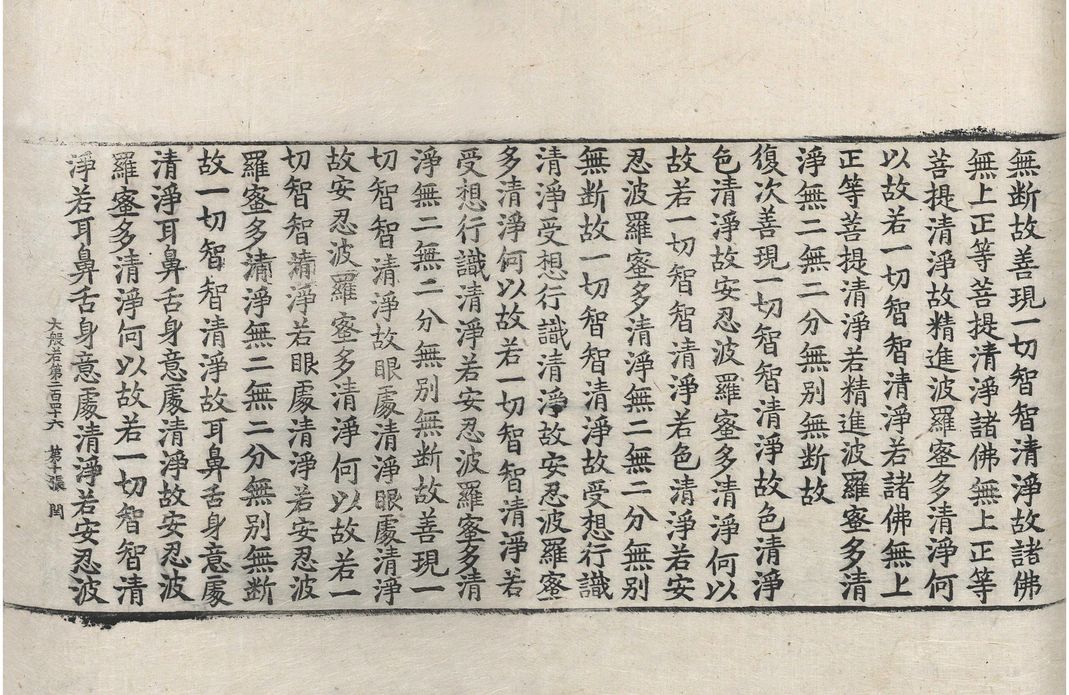 無断故善現一切智智清淨故諸佛
無上正等菩提清淨諸佛無上正等
菩提清淨故精進波羅蜜多清淨何
以故若一切智智清淨若諸佛無上
正等菩提清淨若精進波羅蜜多清
淨無二無二分無別無断故
復次善現一切智智清淨故色清淨
色清淨故安忍波羅蜜多清淨何以
故若一切智智清淨若色清淨若安
忍波羅蜜多清淨無二無二分無別
無断故一切智智清淨故受想行識
清淨受想行識清淨故安忍波羅蜜
多清淨何以故若一切智智清淨若
受想行識清淨若安忍波羅蜜多清
淨無二無二分無別無断故善現一
切智智清淨故眼處清淨眼處清淨
故安忍波羅蜜多清淨何以故若一
切智智清淨若眼處清淨若安忍波
羅蜜多清淨無二無二分無別無断
故一切智智清淨故耳鼻舌身意處
清淨耳鼻舌身意處清淨故安忍波
羅蜜多清淨何以故若一切智智清
淨若耳鼻舌身意處清淨若安忍波
大般若第二百四十六 第十張 閏